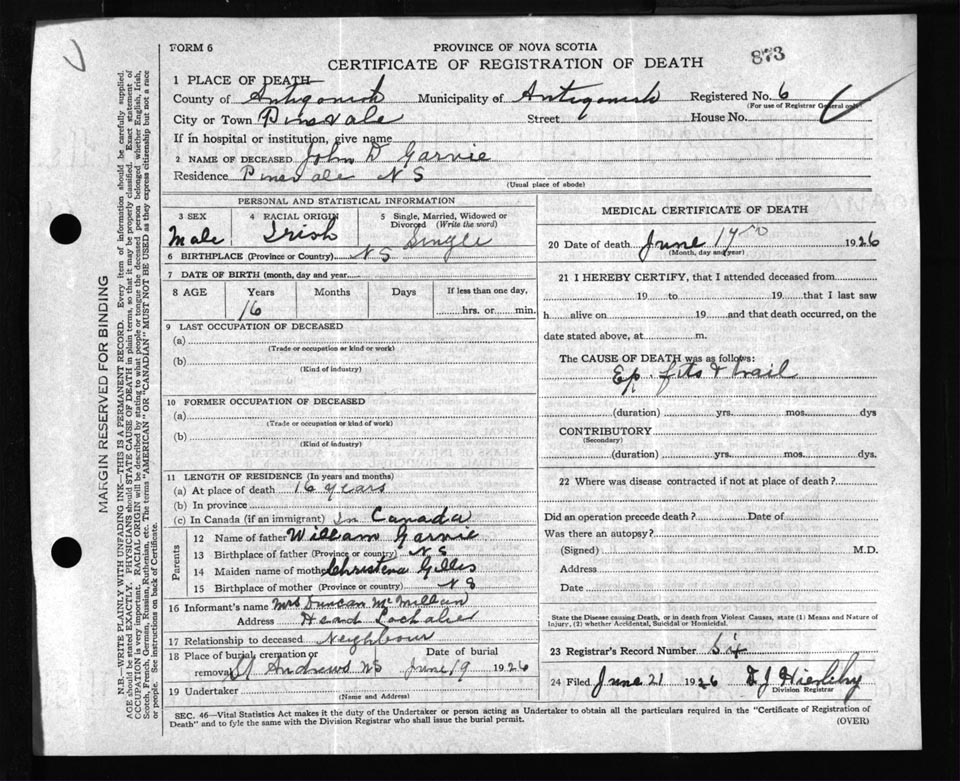 FORM 6
PROVINCE OF NOVA SCOTIA
873
CERTIFICATE OF REGISTRATION OF DEATH
1 PLACE OF DEATH
County of Antigonish Municipality of Antigonish Registered No. 6
(For use of Registrar General only)
City or Town Pinevale Street House No.
If in hospital or institution, give name
2 NAME OF DECEASED John D Garvie
Residence Pinevale N S
(Usual place of abode)
PERSONAL AND STATISTICAL INFORMATION
3 SEX Male
4 RACIAL ORIGIN Irish
5 Single, Married, Widowed or Divorced (Write the word) Single
6 BIRTHPLACE (Province or Country) N S
7 DATE OF BIRTH (month, day and year)
8 AGE Years Months Days If less than one day,
16 hrs. or min.
9 LAST OCCUPATION OF DECEASED
(a)
(Trade or occupation or kind or work)
(b)
(Kind of industry)
10 FORMER OCCUPATION OF DECEASED
(a)
(Trade or occupation or kind of work)
(b)
(Kind of industry)
11 LENGTH OF RESIDENCE (In years and months)
(a) At place of death 16 years
(b) In province
(c) In Canada (if an immigrant) In Canada
Parents
12 Name of father William Garvie
13 Birthplace of father (Province or country) N S
14 Maiden name of mother Christena Gillis
15 Birthplace of mother (Province or country) N S
16 Informant's name Mrs Duncan McMillan
Address Head Lochaber
17 Relationship to deceased Neighbour
18 Place of burial, cremation or removal St Andrews NS Date of burial June 19 1926
19 Undertaker
(Name and Address)
MEDICAL CERTIFICATE OF DEATH
20 Date of death June 17 1926
(Month, day and year)
21 I HEREBY CERTIFY, that I attended deceased from
19 to 19 that I last saw
h alive on 19 and that death occurred, on the
date stated above, at m.
The CAUSE OF DEATH was as follows:
Ep. fits &
(duration) yrs. mos. dys
CONTRIBUTORY
(Secondary)
(duration) yrs. mos. dys.
22 Where was disease contracted if not at place of death?
Did an operation precede death? Date of
Was there an autopsy?
(Signed) M.D.
Address
Date
State the Disease causing Death, or in death from Violent Causes, state (1) Means and Nature of
Injury, (2) whether Accidental, Suicidal or Homicidal.
23 Registrar's Record Number Six
24 Filed June 21 1926
Division Registrar
SEC. 46—Vital Statistics Act makes it the duty of the Undertaker or person acting as Undertaker to obtain all the particulars required in the "Certificate of Registration of
Death" and to fyle the same with the Division Registrar who shall issue the burial permit.
(OVER)
MARGIN RESERVED FOR BINDING
N.B.—WRITE PLAINLY WITH UNFADING INK—THIS IS A PERMANENT RECORD. Every item of information should be carefully supplied.
AGE should be stated EXACTLY. PHYSICIANS should STATE CAUSE OF DEATH in plain terms, so that it may be properly classified. Exact statement of
OCCUPATION is very important. RACIAL ORIGIN will be described by stating to what people or tongue the deceased person belonged whether English, Irish,
Scotch, French, German, Russian, Ruthenian, etc. The terms "AMERICAN" OR "CANADIAN" MUST NOT BE USED as they express citizenship but not a race
or people. See instructions on back of Certificate.